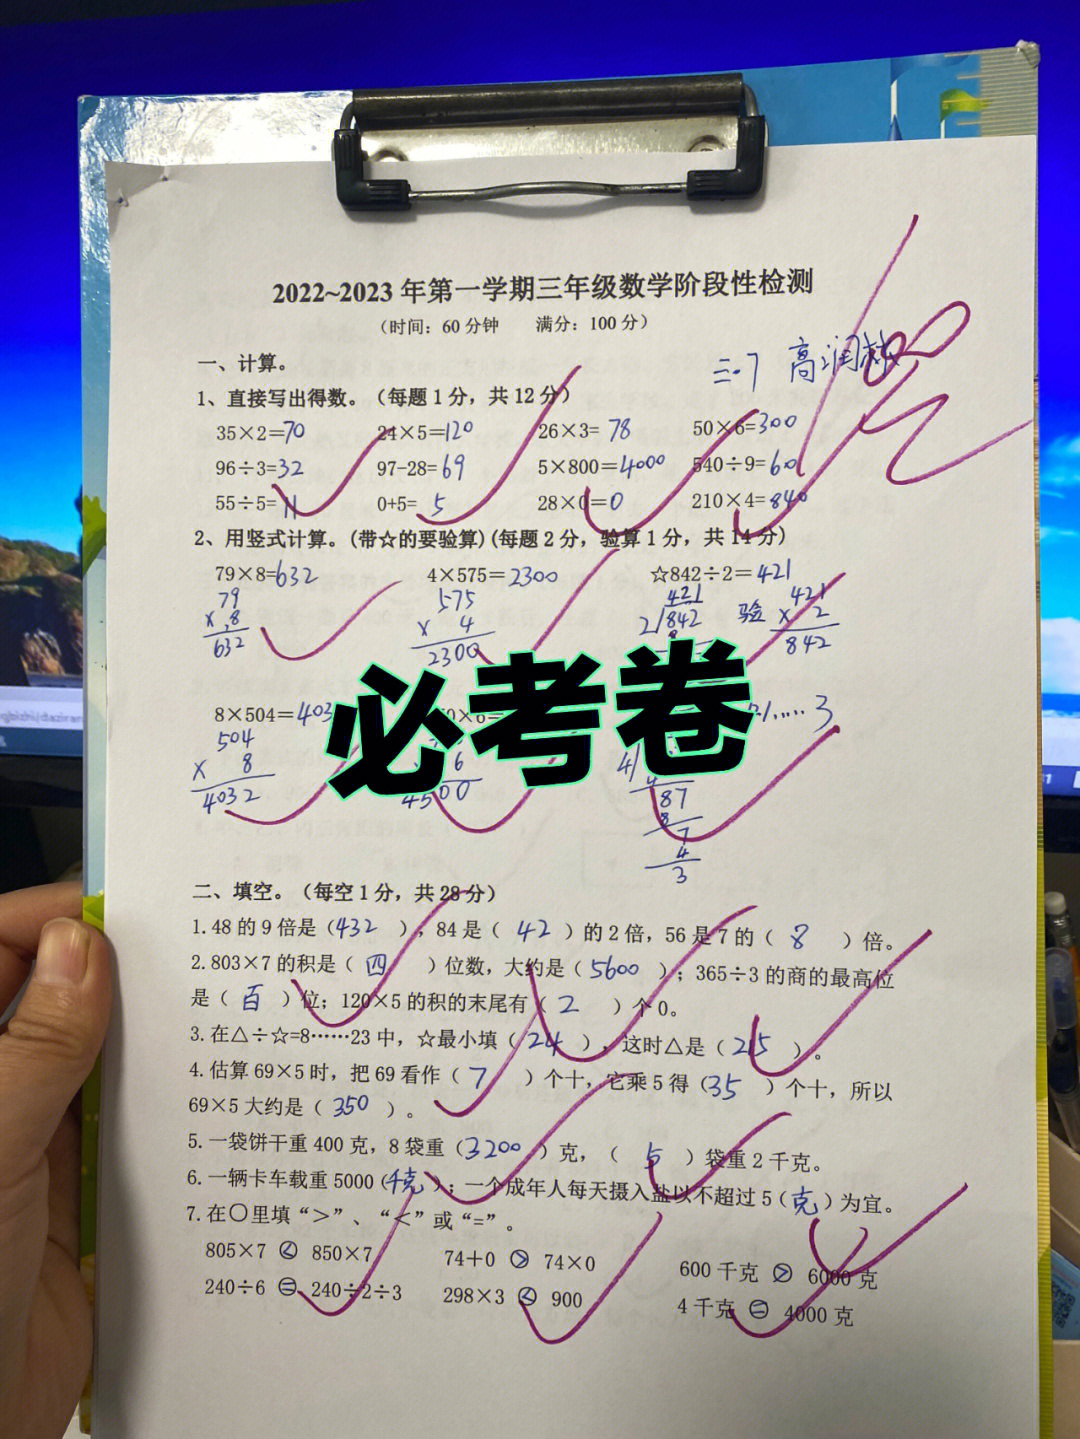 2022~2023 年第一学期三年级数学阶段性检测
（时间：60 分钟 满分：100 分）
三.7 高润
一、计算。
1、直接写出得数。（每题 1 分，共 12 分）
35×2=70 24×5=120 26×3= 78 50×6=300
96÷3=32 97-28= 69 5×800=4000 540÷9=60
55÷5= 11 0+5= 5 28×0=0 210×4=840
2、用竖式计算。(带☆的要验算)(每题 2 分，验算 1 分，共 14 分)
79×8=632 4×575=2300 ☆842÷2=421
79 575 421 421
× 8 × 4 2 842 验 × 2
632 2300 842
必考卷
8×504=403 0×6= 21……3
504
× 8 6 4
4032 4500 87
8
7
4
3
二、填空。（每空 1 分，共 28 分）
1.48 的 9 倍是（432 ），84 是（ 42 ）的 2 倍，56 是 7 的（ 8 ）倍。
2.803×7 的积是（ 四 ）位数，大约是（5600 ）；365÷3 的商的最高位
是（ 百 ）位；120×5 的积的末尾有（ 2 ）个 0。
3.在△÷☆=8……23 中，☆最小填（ 24 ），这时△是（ 215 ）。
4.估算 69×5 时，把 69 看作（ 7 ）个十，它乘 5 得（35 ）个十，所以
69×5 大约是（ 350 ）。
5.一袋饼干重 400 克，8 袋重（3200 ）克，（ 5 ）袋重 2 千克。
6.一辆卡车载重 5000（千克 ）；一个成年人每天摄入盐以不超过 5（克 ）为宜。
7.在○里填“>”、“<”或“=”。
805×7 < 850×7 74＋0 > 74×0 600 千克 > 6000 克
240÷6 = 240÷2÷3 298×3 < 900 4 千克 = 4000 克